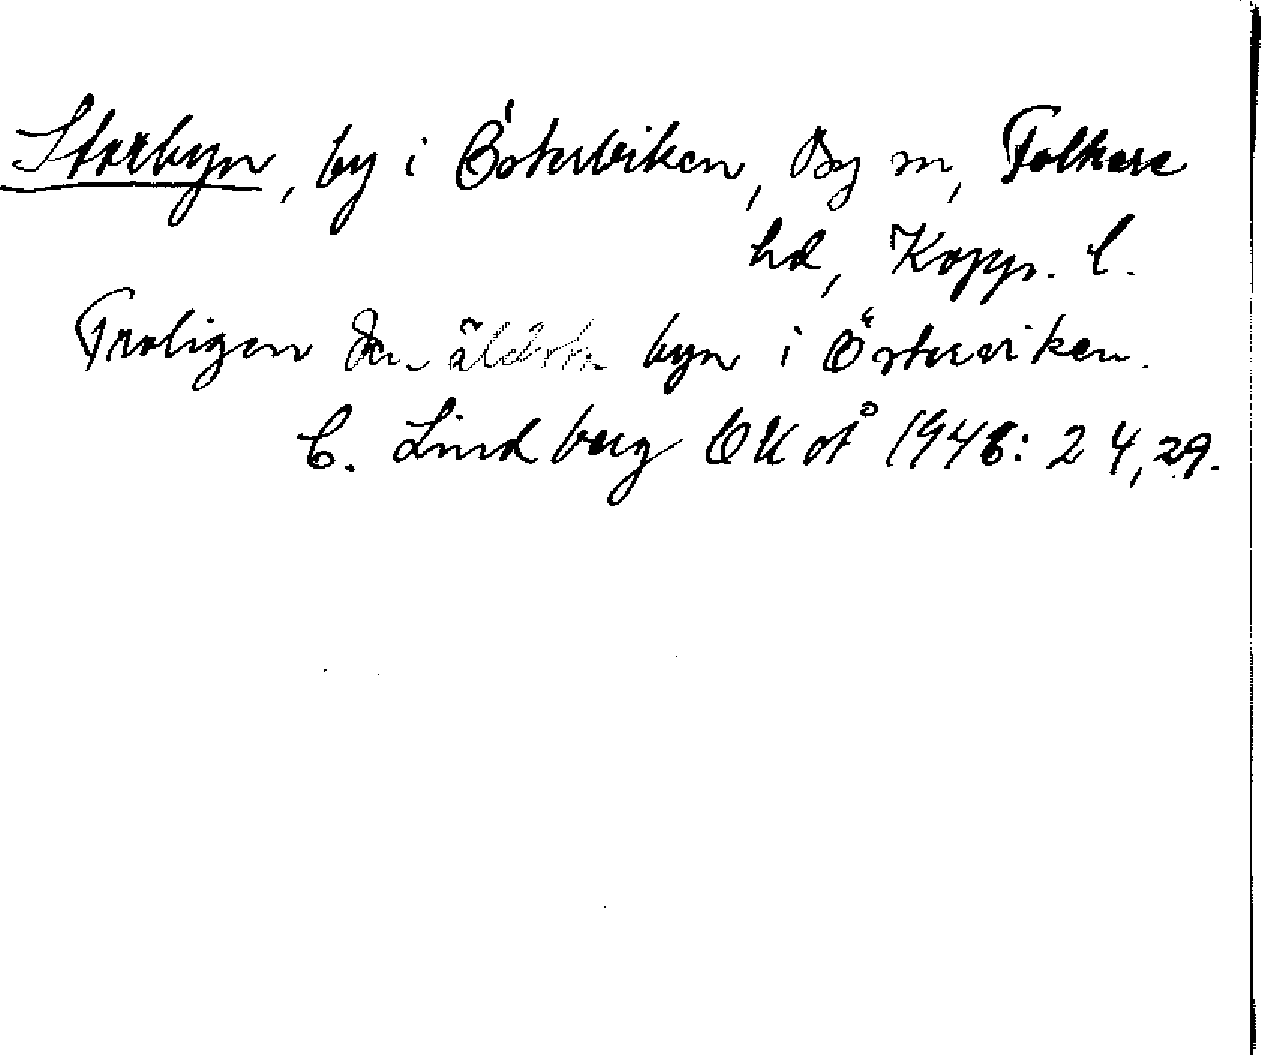 Storbyn, by i Österviken, By sn, Folkare
hd, Kopp. l.
Troligen den äldsta byn i Österviken.
C. Lindberg OUOÅ 1946: 24, 29.